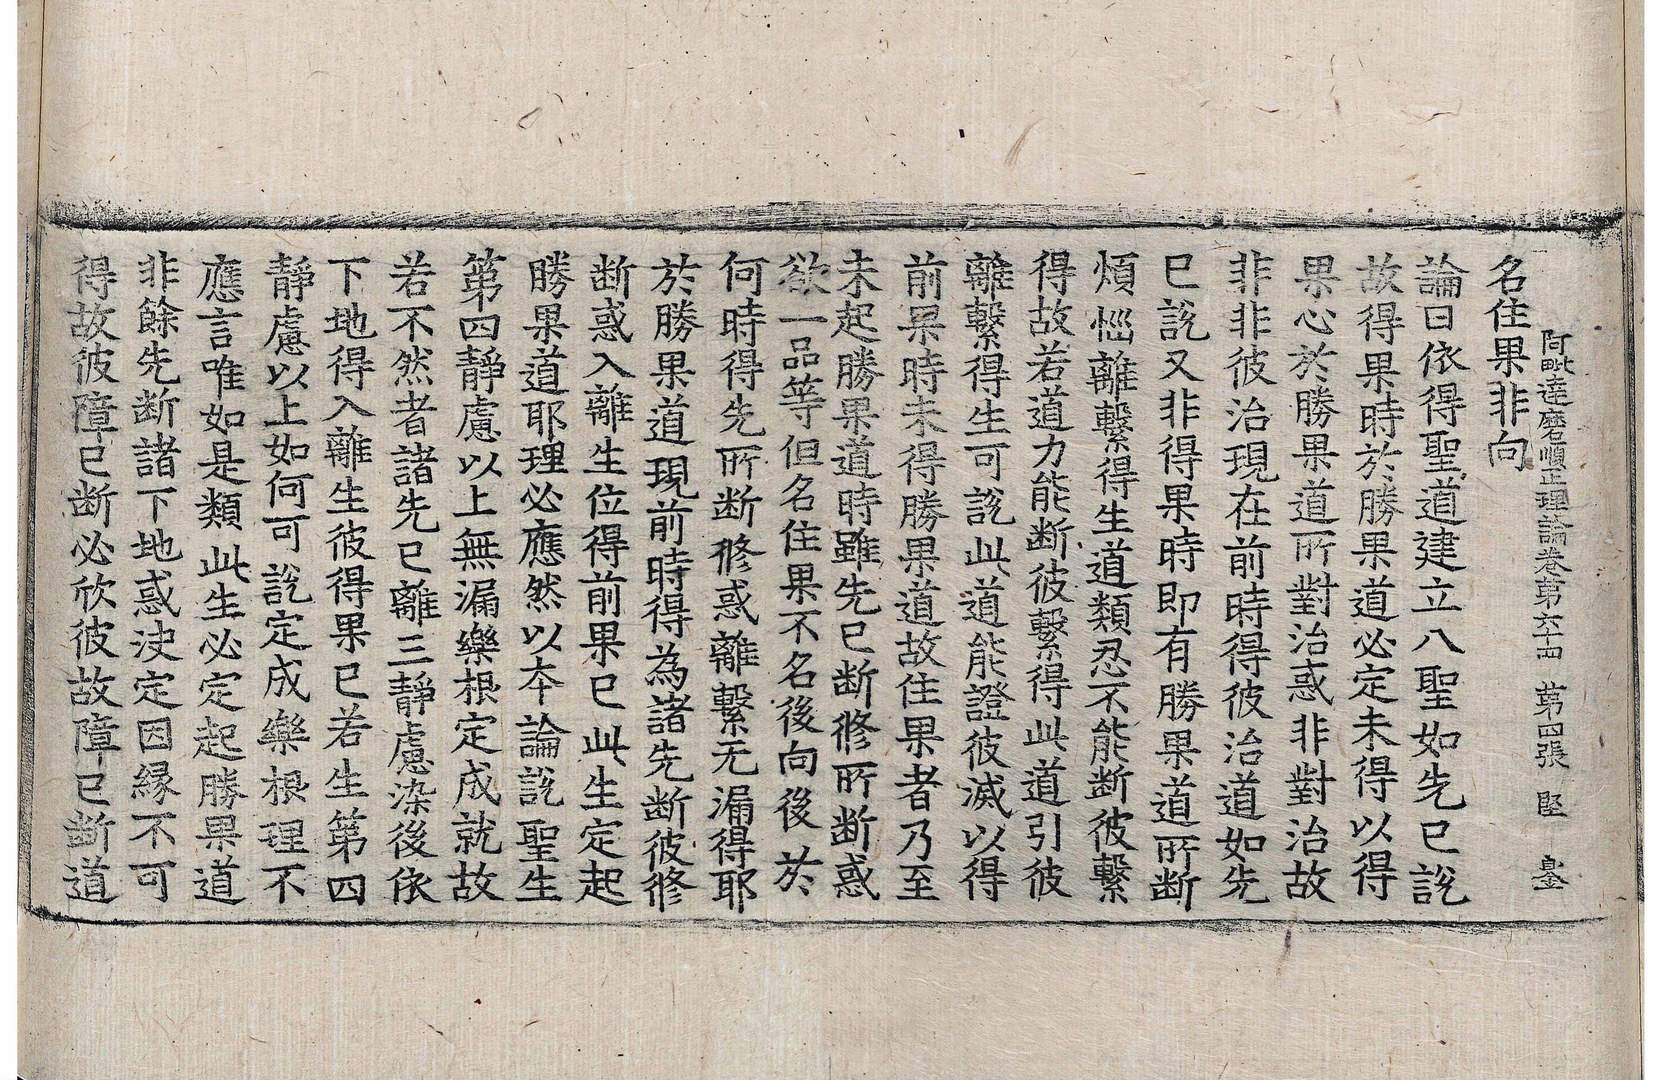 阿毗達磨順正理論卷第六十四 第四張 堅
名住果非向
論曰依得聖道建立八聖如先已說
故得果時於勝果道必定未得以得
果心於勝果道所對治惑非對治故
非非彼治現在前時得彼治道如先
已說又非得果時即有勝果道所断
煩惱離繫得生道類忍不能断彼繫
得故若道力能断彼繫得此道引彼
離繫得生可說此道能證彼滅以得
前果時未得勝果道故住果者乃至
未起勝果道時雖先已断修所断惑
欲一品等但名住果不名後向後於
何時得先所断修惑離繫无漏得耶
於勝果道現前時得為諸先断彼修
断惑入離生位得前果已此生定起
勝果道耶理必應然以本論說聖生
第四靜慮以上無漏樂根定成就故
若不然者諸先已離三靜慮染後依
下地得入離生彼得果已若生第四
靜慮以上如何可說定成樂根理不
應言唯如是類此生必定起勝果道
非餘先断諸下地惑決定因緣不可
得故彼障已断必欣彼故障已断道